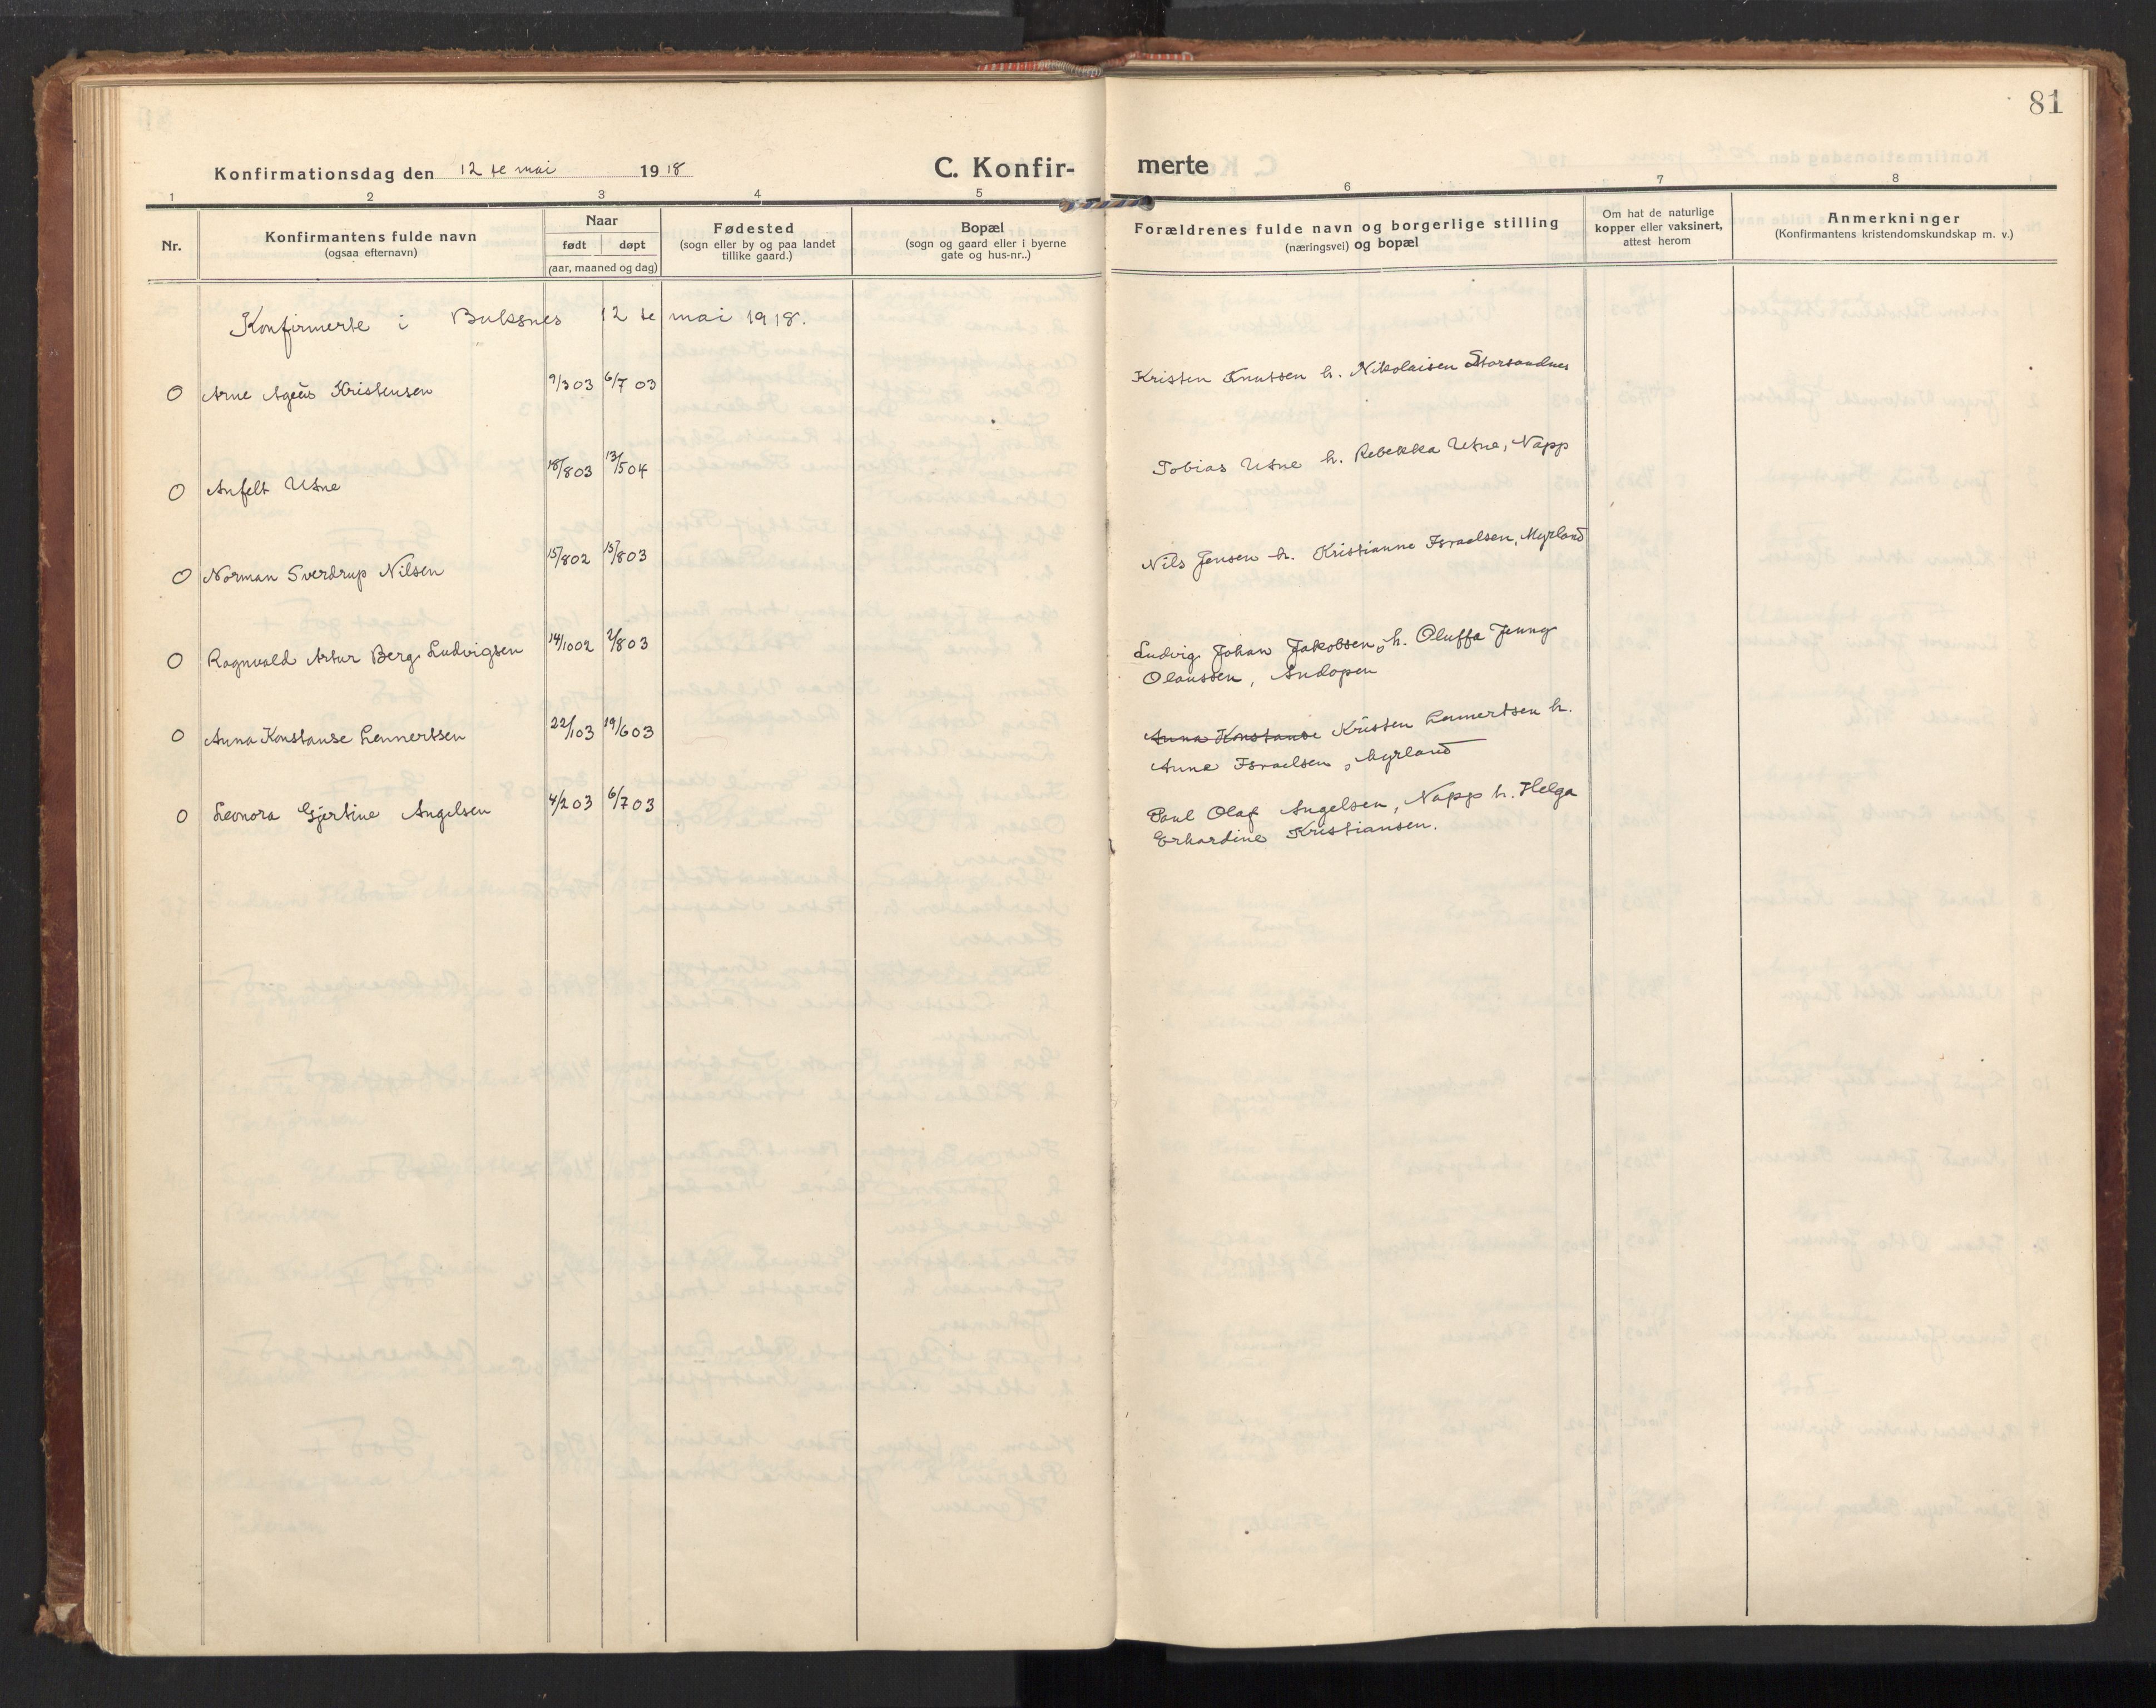 81
Konfirmationsdag den 12 te mai 1918
C. Konfir-
merte
1 2 3 4 5 6 7 8
Nr.
Konfirmantens fulde navn
(ogsaa efternavn)
Naar
født døpt
(aar, maaned og dag)
Fødested
(sogn eller by og paa landet
tillike gaard.)
Bopæl
(sogn og gaard eller i byerne
gate og hus-nr..)
Forældrenes fulde navn og borgerlige stilling
(næringsvei) og bopæl
Om hat de naturlige
kopper eller vaksinert,
attest herom
Anmerkninger
(Konfirmantens kristendomskundskap m. v.)
Konfirmerte i Buksnes 12 te mai 1918.
0 Arne Ageus Kristensen 9/3 03 6/7 03 Kristen Knutsen h. Nikolaisen Storsandnes
0 Anfelt Utne 18/8 03 13/5 04 Tobias Utne h. Rebekka Utne, Napp
0 Norman Sverdrup Nilsen 15/8 02 15/8 03 Nils Jensen h. Kristianne Israelsen, Myrland
0 Ragnvald Artur Berg Ludvigsen 14/10 02 2/8 03 Ludvig Johan Jakobsen, h. Oluffa Jenng
Olaussen, Andopen
0 Anna Konstanse Lennertsen 22/1 03 19/6 03 Anna Konstanse Kristen Lennertsen h.
Anne Israelsen, Myrland
0 Leonora Gjertine Angelsen 4/2 03 6/7 03 Paul Olaf Angelsen, Napp h. Helga
Erhardine Kristiansen.